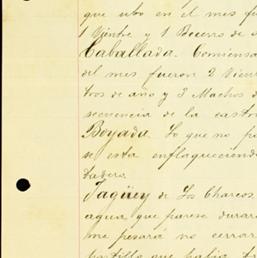 que ubo en el mes
1 Vientre y 1 Becerro de
Caballada. Comiensa
del mes fueron 2 Vien
tros de año y 3 Machos d
secuencia de la cast
Boyada. Lo que no
se esta enflaqueciend
tadero
Tagüey de Los Charcos
agua que parese durar
me pesará no cerrar
portillo que había